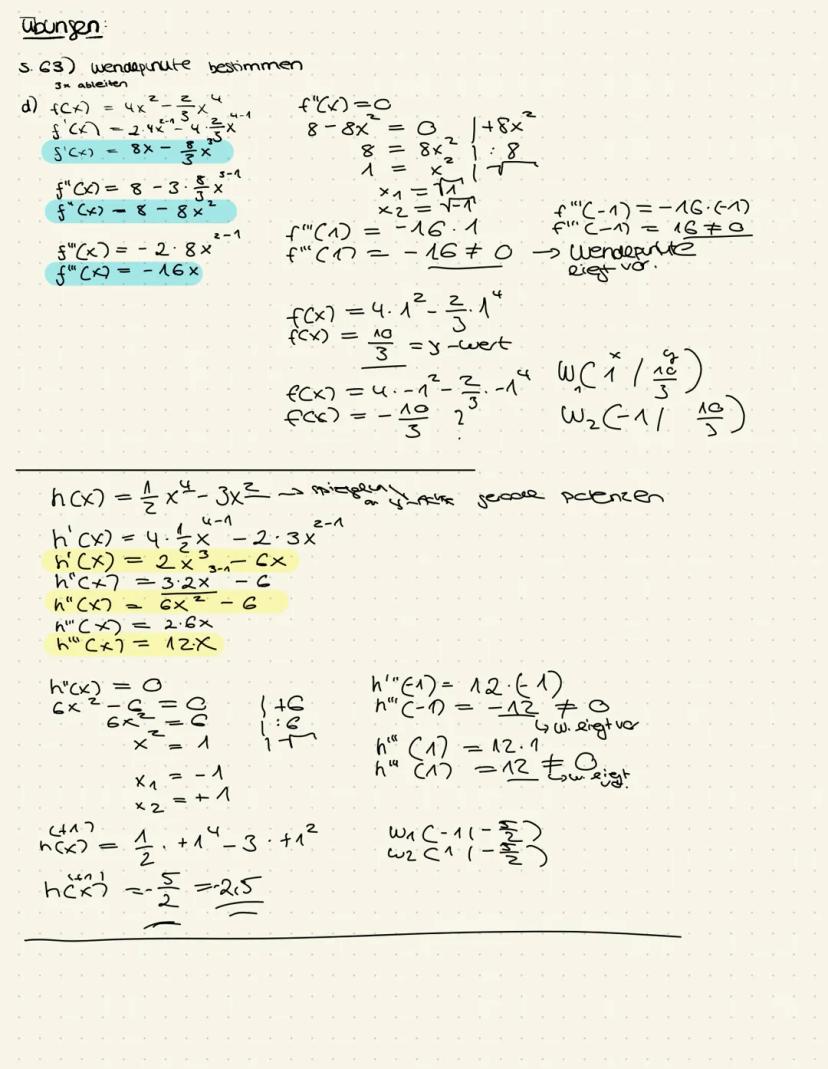 Übungen:
S. 63) Wendepunkte bestimmen
3x ableiten
d) f(x) = 4x² - 2/3 x⁴
f'(x) = 2·4x²⁻¹ - 4·2/3 x⁴⁻¹
f'(x) = 8x - 8/3 x³
f''(x) = 8 - 3·8/3 x³⁻¹
f''(x) = 8 - 8x²
f'''(x) = -2·8x²⁻¹
f'''(x) = -16x
f''(x) = 0
8 - 8x² = 0 | +8x²
8 = 8x² | :8
1 = x² | √
x₁ = √1
x₂ = √-1
f'''(1) = -16·1
f'''(1) = -16 ≠ 0 → Wendepunkte
liegt vor.
f'''(-1) = -16·(-1)
f'''(-1) = 16 ≠ 0
f(x) = 4·1² - 2/3·1⁴
f(x) = 10/3 = y-wert
f(x) = 4·-1² - 2/3·-1⁴
f(x) = -10/3 ?
x y
W₁(1 / 10/3)
W₂(-1 / 10/3)
h(x) = 1/2 x⁴ - 3x² → an y-Achse gerade Potenzen
h'(x) = 4·1/2 x⁴⁻¹ - 2·3x²⁻¹
h'(x) = 2x³ - 6x
h''(x) = 3·2x³⁻¹ - 6
h''(x) = 6x² - 6
h'''(x) = 2·6x
h'''(x) = 12·x
h''(x) = 0
6x² - 6 = 0 | +6
6x² = 6 | :6
x² = 1 | √
x₁ = -1
x₂ = +1
h'''(-1) = 12·(-1)
h'''(-1) = -12 ≠ 0
↳ W. liegt vor
h'''(1) = 12·1
h'''(1) = 12 ≠ 0
↳ W. liegt
(+1)
h(x) = 1/2 · +1⁴ - 3 · +1²
(+1)
h(x) = -5/2 = -2,5
W1 (-1 | -5/2)
W2 (1 | -5/2)